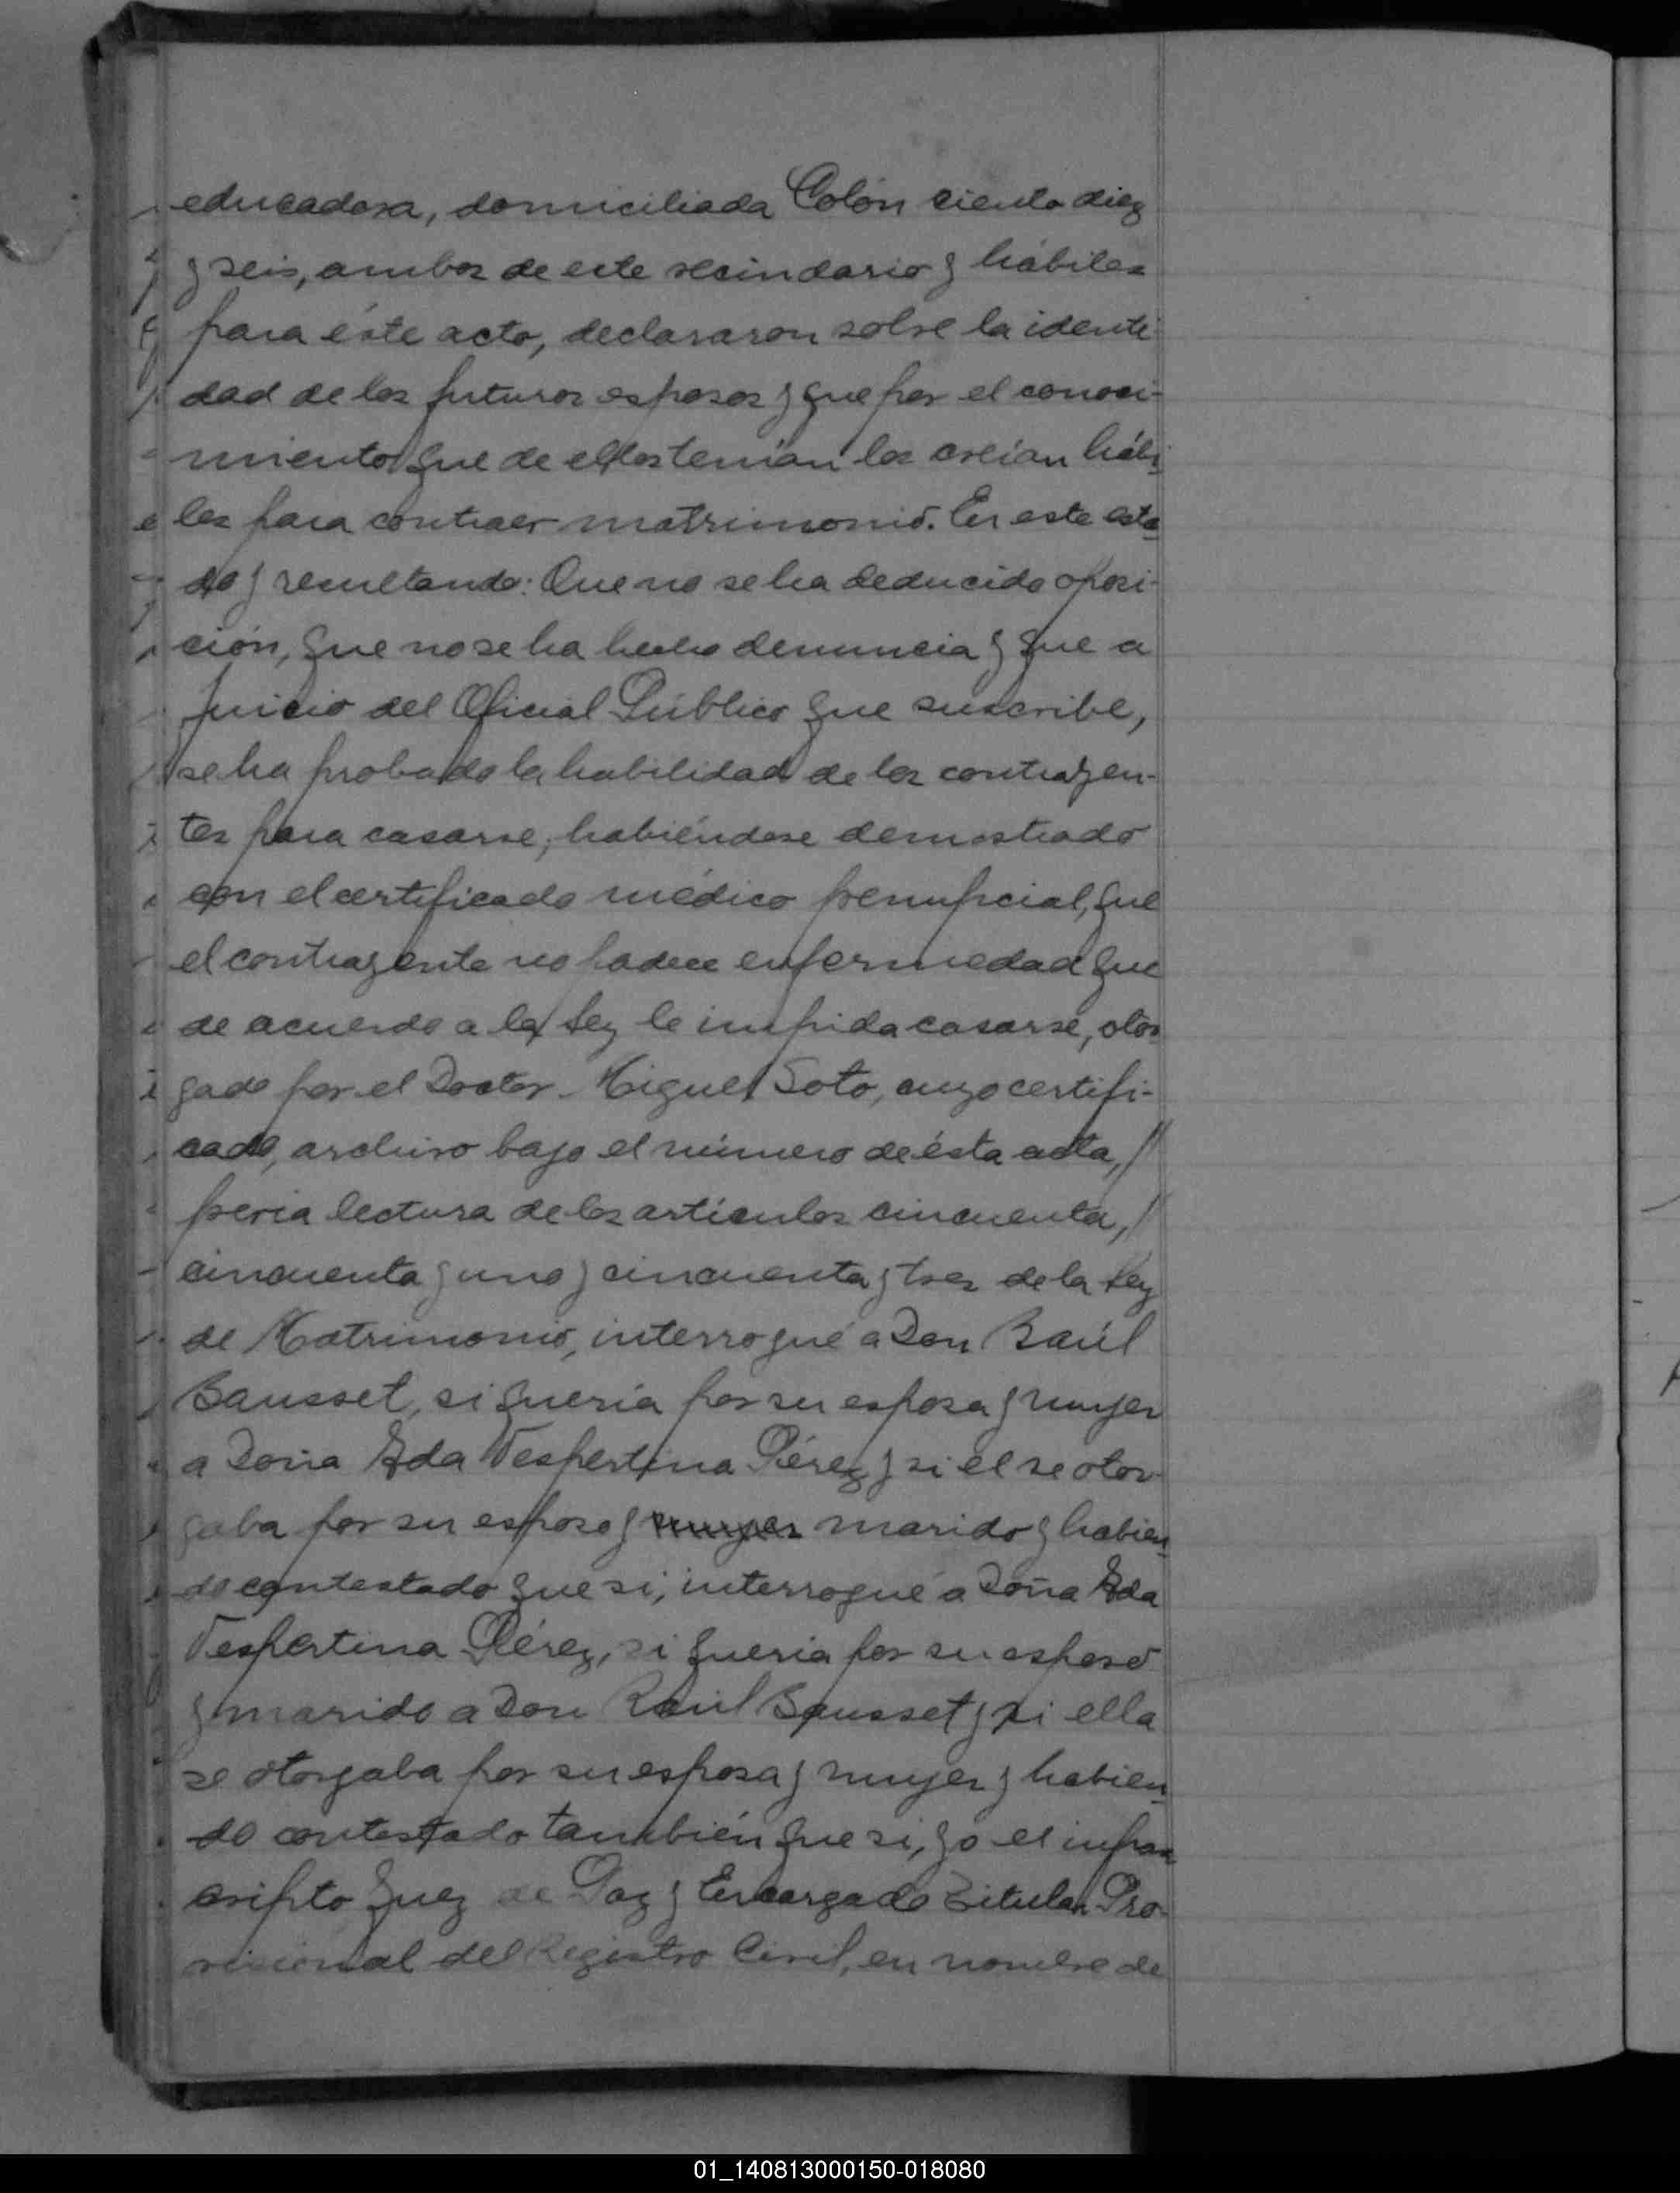 educadora, domiciliada Colón ciento diez
y seis, ambos de este vecindario y hábiles
para éste acto, declararon sobre la identi-
dad de los futuros esposos y que por el conoci-
miento que de ellos tenían los creían hábi-
les para contraer matrimonio. En este esta-
do y resultando: Que no se ha deducido oposi-
ción, que no se ha hecho denuncia y que a
juicio del Oficial Público que suscribe,
se ha probado la habilidad de los contrayen-
tes para casarse, habiéndose demostrado
con el certificado médico prenupcial, que
el contrayente no padece enfermedad que
de acuerdo a la Ley le impida casarse, otor-
gado por el Doctor Miguel Soto, cuyo certifi-
cado, archivo bajo el número de ésta acta, //
previa lectura de los artículos cincuenta, /
cincuenta y uno y cincuenta y tres de la Ley
de Matrimonio, interrogué a Don Raúl
Bausset, si quería por su esposa y mujer
a Doña Vespertina Pérez y si el se otor-
gaba por su esposo y mujer marido y habien-
do contestado que si, interrogué a Doña
Vespertina Pérez, si quería por su esposo
y marido a Don Raúl Bausset y si ella
se otorgaba por su esposa y mujer y habien-
do contestado también que si, yo el infras-
cripto Juez de Paz y Encargado Titular Pro-
visional del Registro Civil, en nombre de
01_140813000150-018080